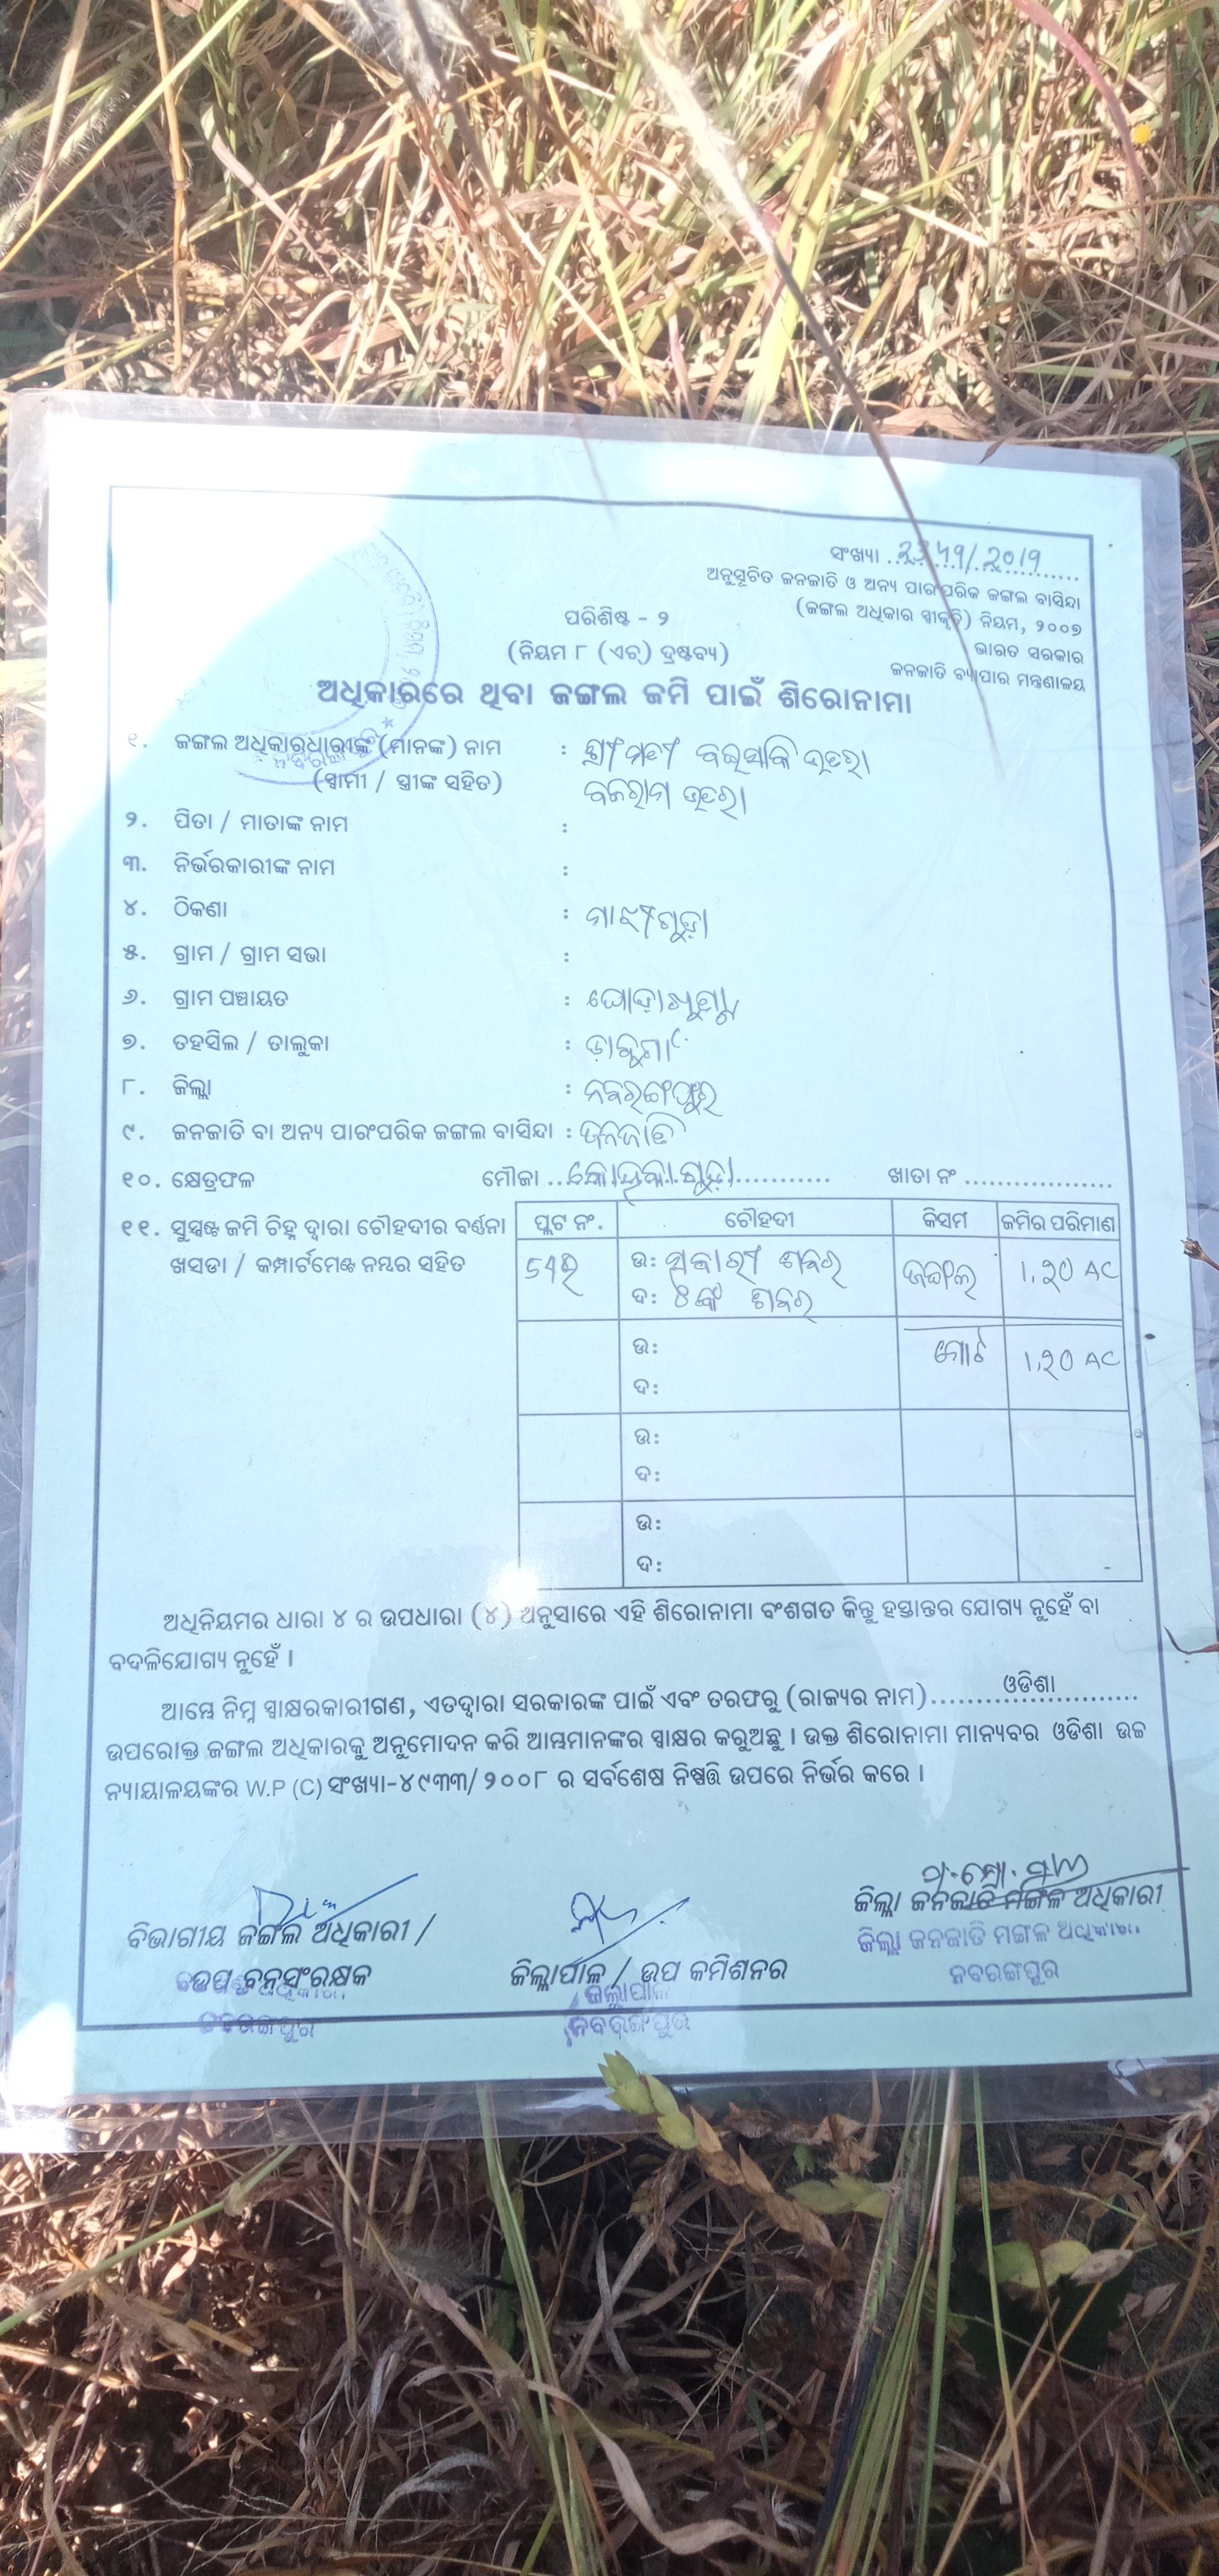 ସଂଖ୍ୟା ..2359/2019..
ଅନୁସୂଚିତ ଜନଜାତି ଓ ଅନ୍ୟ ପାରଂପରିକ ଜଙ୍ଗଲ ବାସିନ୍ଦା
(ଜଙ୍ଗଲ ଅଧିକାର ସ୍ୱୀକୃତି) ନିୟମ, ୨୦୦୭
ଭାରତ ସରକାର
ଜନଜାତି ବ୍ୟାପାର ମନ୍ତ୍ରଣାଳୟ
ପରିଶିଷ୍ଟ - ୨
(ନିୟମ ୮ (ଏଚ୍) ଦ୍ରଷ୍ଟବ୍ୟ)
ଅଧିକାରରେ ଥିବା ଜଙ୍ଗଲ ଜମି ପାଇଁ ଶିରୋନାମା
୧. ଜଙ୍ଗଲ ଅଧିକାରଧାରୀଙ୍କ (ମାନଙ୍କ) ନାମ : ଶ୍ରୀମତୀ ବଇସାକି ଭତରା
(ସ୍ୱାମୀ / ସ୍ତ୍ରୀଙ୍କ ସହିତ) ବଳରାମ ଭତରା
୨. ପିତା / ମାତାଙ୍କ ନାମ :
୩. ନିର୍ଭରକାରୀଙ୍କ ନାମ :
୪. ଠିକଣା : ମାଝୀଗୁଡ଼ା
୫. ଗ୍ରାମ / ଗ୍ରାମ ସଭା :
୬. ଗ୍ରାମ ପଞ୍ଚାୟତ :
୭. ତହସିଲ / ତାଲୁକା : ଡ଼ାବୁଗାଁ
୮. ଜିଲ୍ଲା : ନବରଙ୍ଗପୁର
୯. ଜନଜାତି ବା ଅନ୍ୟ ପାରଂପରିକ ଜଙ୍ଗଲ ବାସିନ୍ଦା : ଜନଜାତି
୧୦. କ୍ଷେତ୍ରଫଳ ମୌଜା ... ଖାତା ନଂ ..................
୧୧. ସୁସ୍ପଷ୍ଟ ଜମି ଚିହ୍ନ ଦ୍ୱାରା ଚୌହଦୀର ବର୍ଣ୍ଣନା ପ୍ଲଟ ନଂ. ଚୌହଦୀ କିସମ ଜମିର ପରିମାଣ
ଖସଡା / କମ୍ପାର୍ଟମେଣ୍ଟ ନମ୍ବର ସହିତ ଉଃ ଶବର ଜଙ୍ଗଲ 1.20 AC
ଦଃ ଶବର
ଉଃ ମୋଟ 1.20 AC
ଦଃ
ଉଃ
ଦଃ
ଉଃ
ଦଃ
ଅଧିନିୟମର ଧାରା ୪ ର ଉପଧାରା (୪) ଅନୁସାରେ ଏହି ଶିରୋନାମା ବଂଶଗତ କିନ୍ତୁ ହସ୍ତାନ୍ତର ଯୋଗ୍ୟ ନୁହେଁ ବା
ବଦଳିଯୋଗ୍ୟ ନୁହେଁ ।
ଆମ୍ଭେ ନିମ୍ନ ସ୍ୱାକ୍ଷରକାରୀଗଣ, ଏତଦ୍ୱାରା ସରକାରଙ୍କ ପାଇଁ ଏବଂ ତରଫରୁ (ରାଜ୍ୟର ନାମ) ........ଓଡିଶା........
ଉପରୋକ୍ତ ଜଙ୍ଗଲ ଅଧିକାରକୁ ଅନୁମୋଦନ କରି ଆମ୍ଭମାନଙ୍କର ସ୍ୱାକ୍ଷର କରୁଅଛୁ । ଉକ୍ତ ଶିରୋନାମା ମାନ୍ୟବର ଓଡିଶା ଉଚ୍ଚ
ନ୍ୟାୟାଳୟଙ୍କର W.P (C) ସଂଖ୍ୟା-୪୯୩୩/୨୦୦୮ ର ସର୍ବଶେଷ ନିଷ୍ପତ୍ତି ଉପରେ ନିର୍ଭର କରେ ।
ବିଭାଗୀୟ ଜଙ୍ଗଲ ଅଧିକାରୀ /
ଉପ ବନସଂରକ୍ଷକ
ନବରଙ୍ଗପୁର
ଜିଲ୍ଲାପାଳ / ଉପ କମିଶନର
ଜିଲ୍ଲାପାଳ
ନବରଙ୍ଗପୁର
ଜିଲ୍ଲା ଜନଜାତି ମଙ୍ଗଳ ଅଧିକାରୀ
ଜିଲ୍ଲା ଜନଜାତି ମଙ୍ଗଳ ଅଧିକାରୀ
ନବରଙ୍ଗପୁର